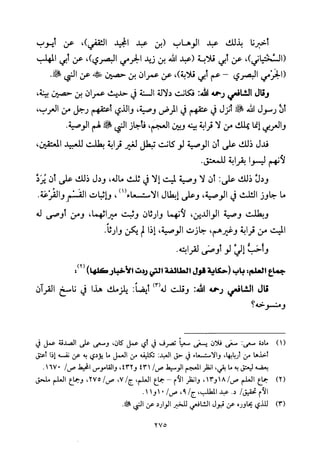 أخبرنا بذلك عبد الوهاب (بن عبد المجيد الثقفي)، عن أيوب
(السَّختياني)، عن أبي قلابة (عبد الله بن زيد الجرمي البصري)، عن أبي المهلب
(الجَرْمي البصري - عم أبي قلابة)، عن عمران بن حصين ﵁ عن النبي ﷺ.
وقال الشافعي رحمه الله: فكانت دلالة السنة في حديث عمران بن حصين بينة،
أنَّ رسول الله ﷺ أنزل في عتقهم في المرض وصية، والذي أعتقهم رجل من العرب،
والعربي إنما يملك من لا قرابة بينه وبين العجم، فأجاز النبي ﷺ لهم الوصية.
فدل ذلك على أن الوصية لو كانت تبطل لغير قرابة بطلت للعبيد المعتقين،
لأنهم ليسوا بقرابة للمعتق.
ودلَّ ذلك على: أن لا وصية لميت إلا في ثلث ماله، ودل ذلك على أن يُرَدَّ
ما جاوز الثلث في الوصية، وعلى إبطال الاستسعاء(١)، وإثبات القَسْم والقُرْعَة.
وبطلت وصية الوالدين، لأنهما وارثان وثبت ميراثهما، ومن أوصى له
الميت من قرابة وغيرهم، جازت الوصية، إذا لم يكن وارثاً.
وأحَبُّ إليَّ لو أوصى لقرابته.
جماع العلم: باب (حكاية قول الطائفة التي ردت الأخبار كلها)(٢):
قال الشافعي رحمه الله: وقلت له(٣) أيضاً: يلزمك هذا في ناسخ القرآن
ومنسوخه؟
(١) مادة سعى: سعَى فلان يسعَى سعياً تصرف في أي عمل كان، وسعى على الصدقة عمل في
أخذها من أربابها، والاستسعاء في حق العبد: تكليفه من العمل ما يؤدي به عن نفسه إذا أعتق
بعضه ليعتق به ما بقي، انظر المعجم الوسيط ص/ ٤٣١ و٤٣٢، والقاموس المحيط ص/ ١٦٧٠.
(٢) جماع العلم ص/ ١٨و١٣، وانظر الأم - جماع العلم، ج/ ٧، ص/ ٢٧٥، وجماع العلم ملحق
الأم تحقيق/ د. عبد المطلب، ج/ ٩، ص/ ١٠و١١.
(٣) للذي يحاوره عن قبول الشافعي للخبر الوارد عن النبي ﷺ.
٢٧٥